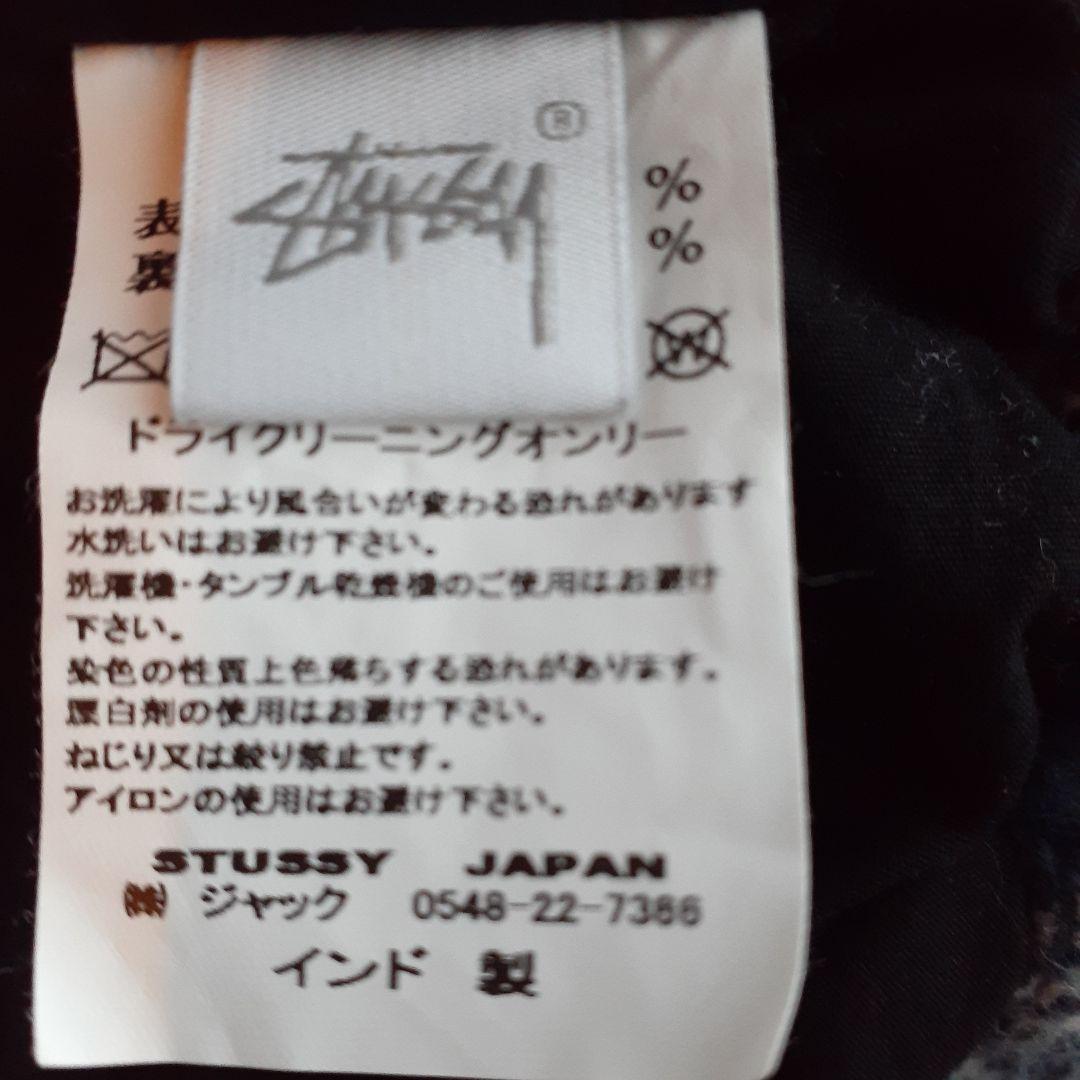 Stüssy ®
表 %
裏 %
W
ドライクリーニングオンリー
お洗濯により風合いが変わる恐れがあります
水洗いはお避け下さい。
洗濯機・タンブル乾燥機のご使用はお避け
下さい。
染色の性質上色落ちする恐れがあります。
漂白剤の使用はお避け下さい。
ねじり又は絞り禁止です。
アイロンの使用はお避け下さい。
STUSSY JAPAN
㈱ ジャック 0548-22-7366
インド 製